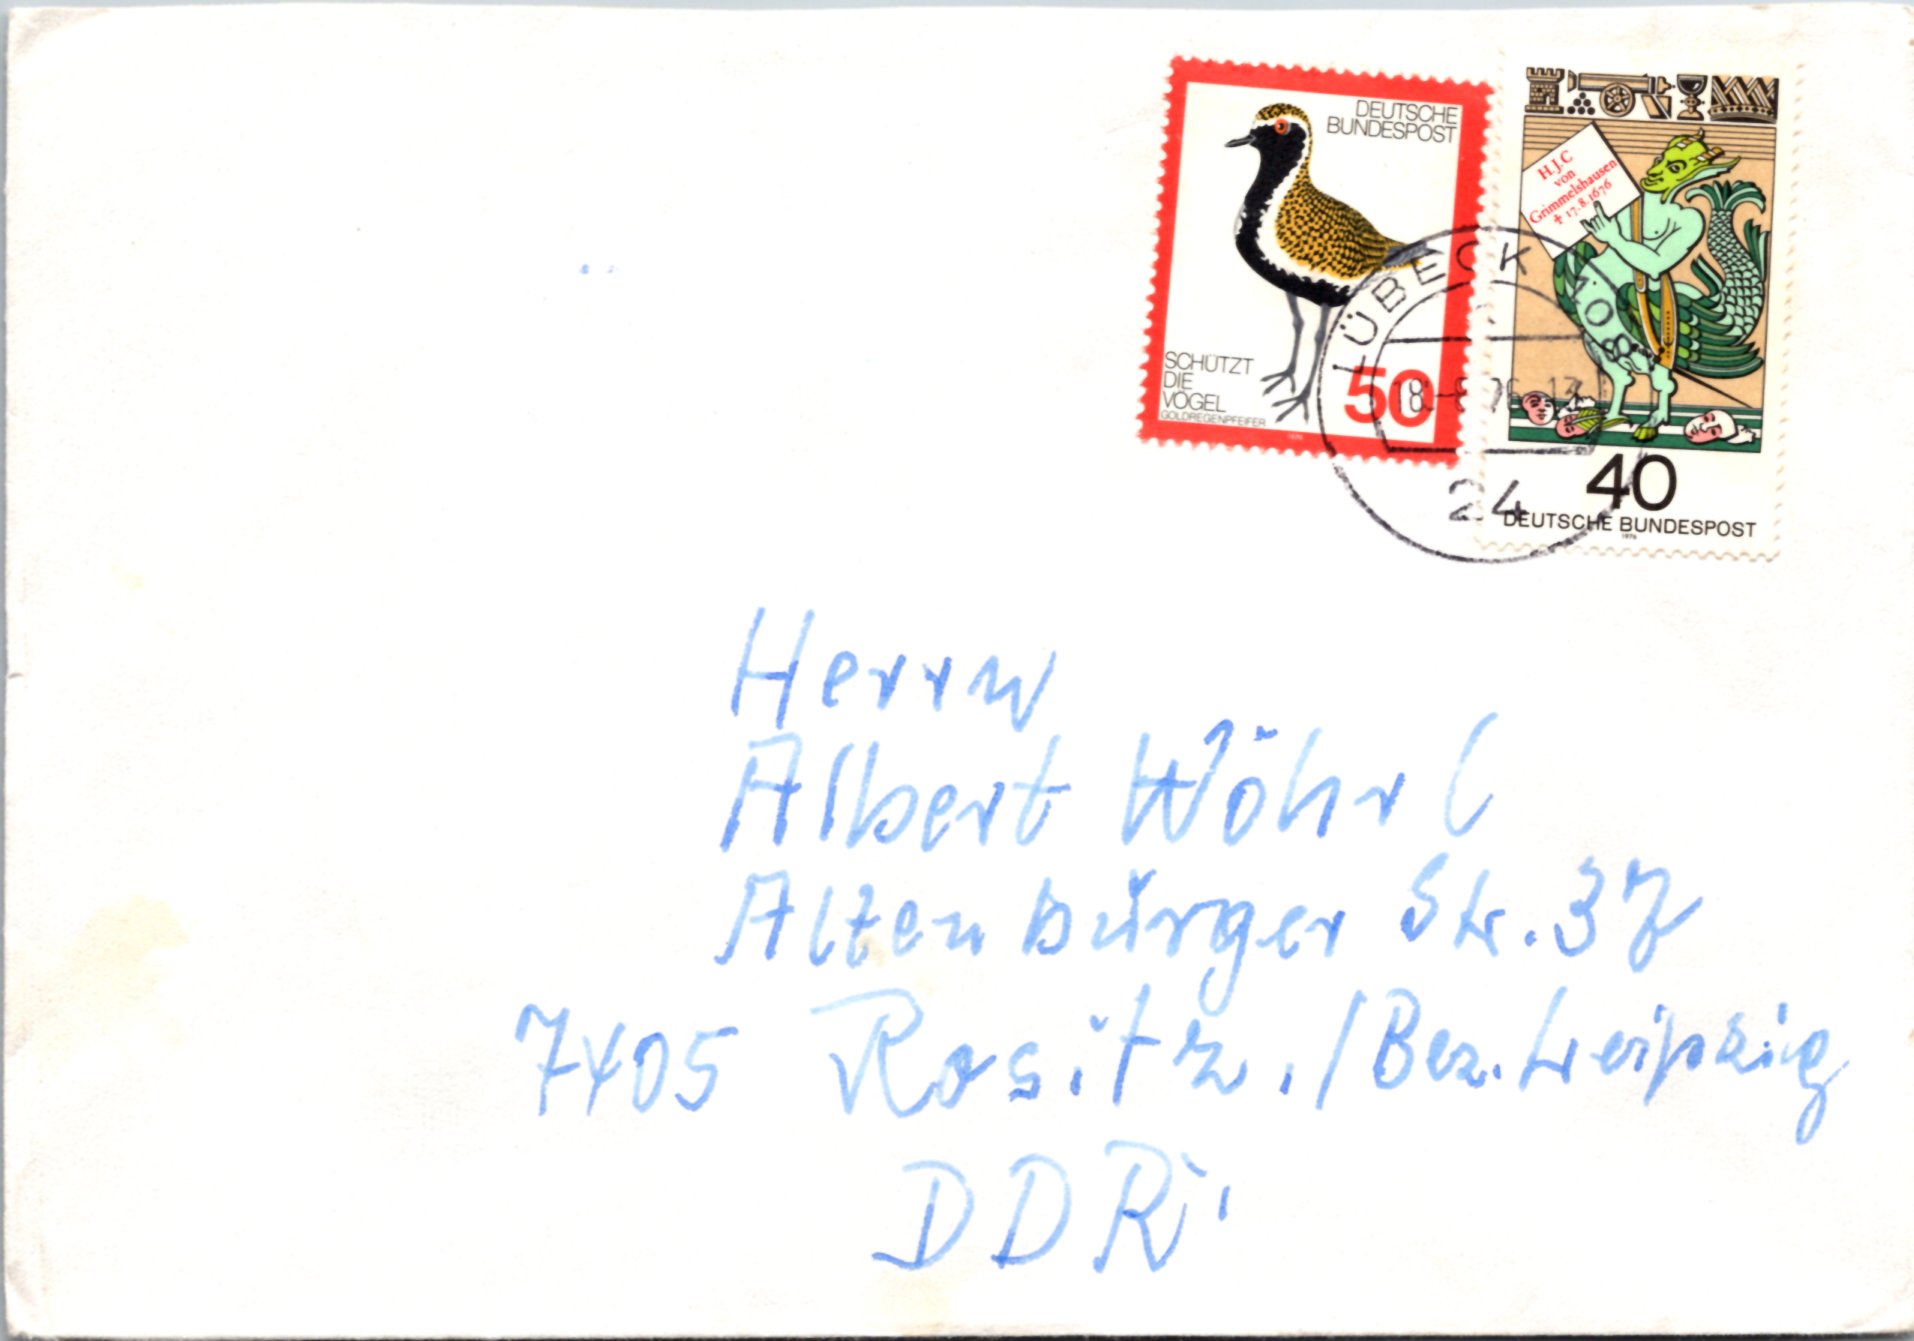 DEUTSCHE
BUNDESPOST
SCHÜTZT
DIE
VÖGEL
GOLDREGENPFEIFER
50
1976
H.J.C
von
Grimmelshausen
✝ 17.8.1676
40
DEUTSCHE BUNDESPOST
1976
LÜBECK 108
18.-8.76-17
24
Herrn
Albert Wöhrl
Altenburger Str. 37
7405 Rositz./Bez. Leipzig
DDR.